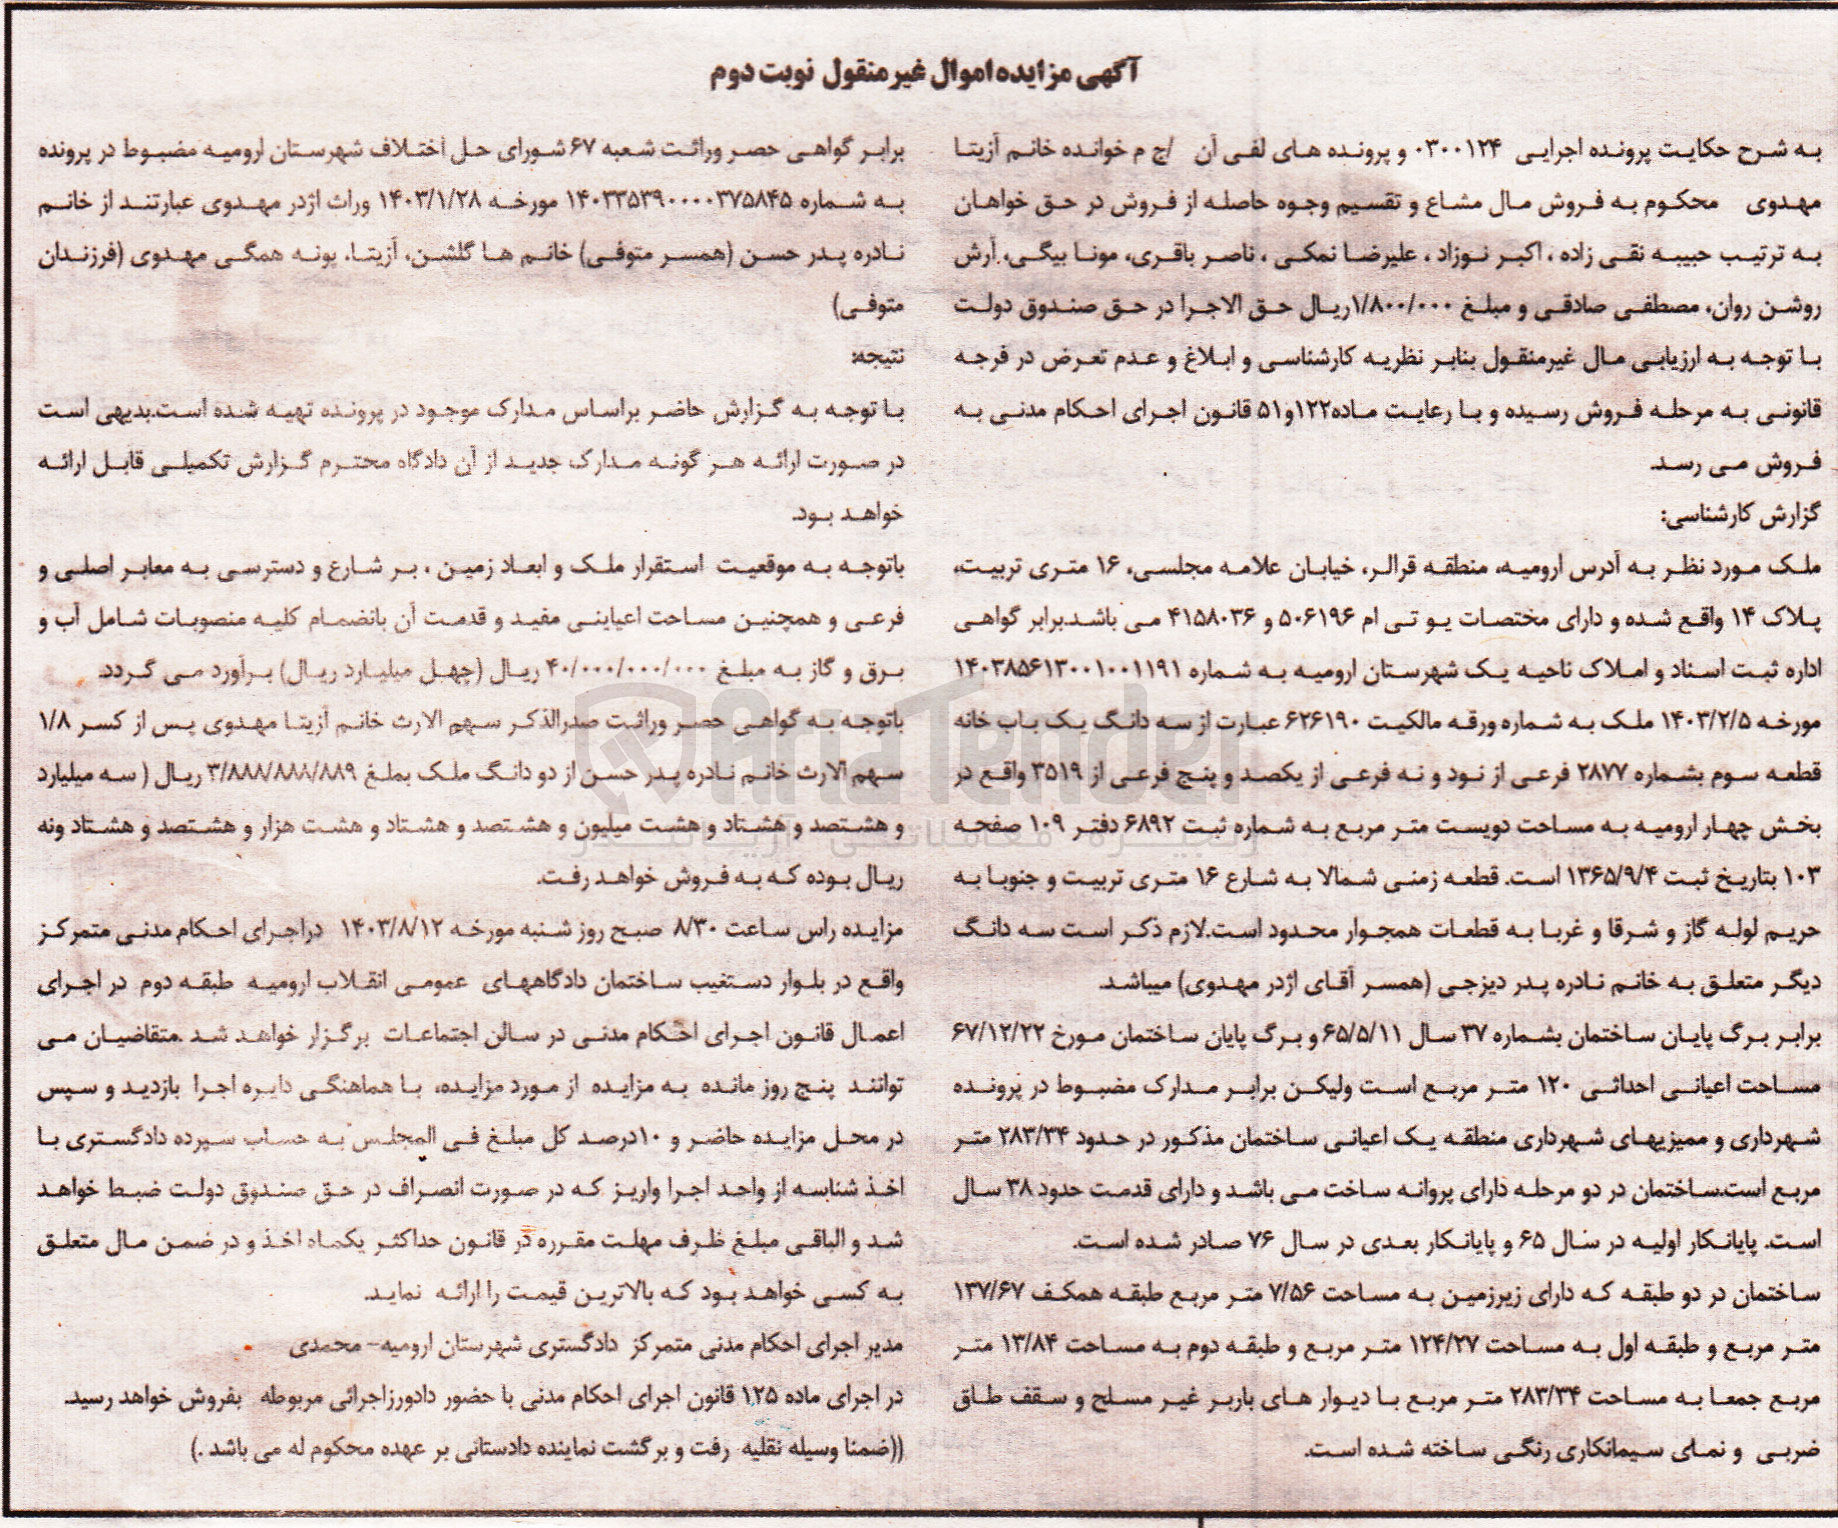 آگهی مزایده اموال غیرمنقول نوبت دوم
به شرح حکایت پرونده اجرایی ۰۳۰۰۱۲۴ و پرونده های لفی آن /ج م خوانده خانم آزیتا
مهدوی محکوم به فروش مال مشاع و تقسیم وجوه حاصله از فروش در حق خواهان
به ترتیب حبیبه نقی زاده ، اکبر نوزاد ، علیرضا نمکی ، ناصر باقری، مونا بیگی، آرش
روشن روان، مصطفی صادقی و مبلغ ۱/۸۰۰/۰۰۰ریال حق الاجرا در حق صندوق دولت
با توجه به ارزیابی مال غیرمنقول بنابر نظریه کارشناسی و ابلاغ و عدم تعرض در فرجه
قانونی به مرحله فروش رسیده و با رعایت ماده۱۲۲و۵۱ قانون اجرای احکام مدنی به
فروش می رسد.
گزارش کارشناسی:
ملک مورد نظر به آدرس ارومیه، منطقه قرالر، خیابان علامه مجلسی، ۱۶ متری تربیت،
پلاک ۱۴ واقع شده و دارای مختصات یو تی ام ۵۰۶۱۹۶ و ۴۱۵۸۰۳۶ می باشد.برابر گواهی
اداره ثبت اسناد و املاک ناحیه یک شهرستان ارومیه به شماره ۱۴۰۳۸۵۶۱۳۰۰۱۰۰۱۱۹۱
مورخه ۱۴۰۳/۲/۵ ملک به شماره ورقه مالکیت ۶۲۶۱۹۰ عبارت از سه دانگ یک باب خانه
قطعه سوم بشماره ۲۸۷۷ فرعی از نود و نه فرعی از یکصد و پنج فرعی از ۳۵۱۹ واقع در
بخش چهار ارومیه به مساحت دویست متر مربع به شماره ثبت ۶۸۹۲ دفتر ۱۰۹ صفحه
۱۰۳ بتاریخ ثبت ۱۳۶۵/۹/۴ است. قطعه زمنی شمالا به شارع ۱۶ متری تربیت و جنوبا به
حریم لوله گاز و شرقا و غربا به قطعات همجوار محدود است.لازم ذکر است سه دانگ
دیگر متعلق به خانم نادره پدر دیزجی (همسر آقای اژدر مهدوی) میباشد.
برابر برگ پایان ساختمان بشماره ۳۷ سال ۶۵/۵/۱۱ و برگ پایان ساختمان مورخ ۶۷/۱۲/۲۲
مساحت اعیانی احداثی ۱۲۰ متر مربع است ولیکن برابر مدارک مضبوط در پرونده
شهرداری و ممیزیهای شهرداری منطقه یک اعیانی ساختمان مذکور در حدود ۲۸۳/۳۴ متر
مربع است.ساختمان در دو مرحله دارای پروانه ساخت می باشد و دارای قدمت حدود ۳۸ سال
است. پایانکار اولیه در سال ۶۵ و پایانکار بعدی در سال ۷۶ صادر شده است.
ساختمان در دو طبقه که دارای زیرزمین به مساحت ۷/۵۶ متر مربع طبقه همکف ۱۳۷/۶۷
متر مربع و طبقه اول به مساحت ۱۲۴/۲۷ متر مربع و طبقه دوم به مساحت ۱۳/۸۴ متر
مربع جمعا به مساحت ۲۸۳/۳۴ متر مربع با دیوار های باربر غیر مسلح و سقف طاق
ضربی و نمای سیمانکاری رنگی ساخته شده است.
برابر گواهی حصر وراثت شعبه ۶۷ شورای حل اختلاف شهرستان ارومیه مضبوط در پرونده
به شماره ۱۴۰۳۳۵۳۹۰۰۰۰۳۷۵۸۴۵ مورخه ۱۴۰۳/۱/۲۸ وراث اژدر مهدوی عبارتند از خانم
نادره پدر حسن (همسر متوفی) خانم ها گلشن، آزیتا، پونه همگی مهدوی (فرزندان
متوفی)
نتیجه:
با توجه به گزارش حاضر براساس مدارک موجود در پرونده تهیه شده است.بدیهی است
در صورت ارائه هر گونه مدارک جدید از آن دادگاه محترم گزارش تکمیلی قابل ارائه
خواهد بود.
باتوجه به موقعیت استقرار ملک و ابعاد زمین ، بر شارع و دسترسی به معابر اصلی و
فرعی و همچنین مساحت اعیاینی مفید و قدمت آن بانضمام کلیه منصوبات شامل آب و
برق و گاز به مبلغ ۴۰/۰۰۰/۰۰۰/۰۰۰ ریال (چهل میلیارد ریال) برآورد می گردد.
باتوجه به گواهی حصر وراثت صدرالذکر سهم الارث خانم آزیتا مهدوی پس از کسر ۱/۸
سهم الارث خانم نادره پدر حسن از دو دانگ ملک بملغ ۳/۸۸۸/۸۸۸/۸۸۹ ریال ( سه میلیارد
و هشتصد و هشتاد و هشت میلیون و هشتصد و هشتاد و هشت هزار و هشتصد و هشتاد ونه
ریال بوده که به فروش خواهد رفت.
مزایده راس ساعت ۸/۳۰ صبح روز شنبه مورخه ۱۴۰۳/۸/۱۲ دراجرای احکام مدنی متمرکز
واقع در بلوار دستغیب ساختمان دادگاههای عمومی انقلاب ارومیه طبقه دوم در اجرای
اعمال قانون اجرای احکام مدنی در سالن اجتماعات برگزار خواهد شد .متقاضیان می
توانند پنج روز مانده به مزایده از مورد مزایده، با هماهنگی دایره اجرا بازدید و سپس
در محل مزایده حاضر و ۱۰درصد کل مبلغ فی المجلس به حساب سپرده دادگستری با
اخذ شناسه از واحد اجرا واریز که در صورت انصراف در حق صندوق دولت ضبط خواهد
شد و الباقی مبلغ ظرف مهلت مقرره در قانون حداکثر یکماه اخذ و در ضمن مال متعلق
به کسی خواهد بود که بالاترین قیمت را ارائه نماید.
مدیر اجرای احکام مدنی متمرکز دادگستری شهرستان ارومیه- محمدی
در اجرای ماده ۱۲۵ قانون اجرای احکام مدنی با حضور دادورزاجرائی مربوطه بفروش خواهد رسید.
((ضمنا وسیله نقلیه رفت و برگشت نماینده دادستانی بر عهده محکوم له می باشد .)
AriaTender
زنجیره معاملاتی آریاتندر